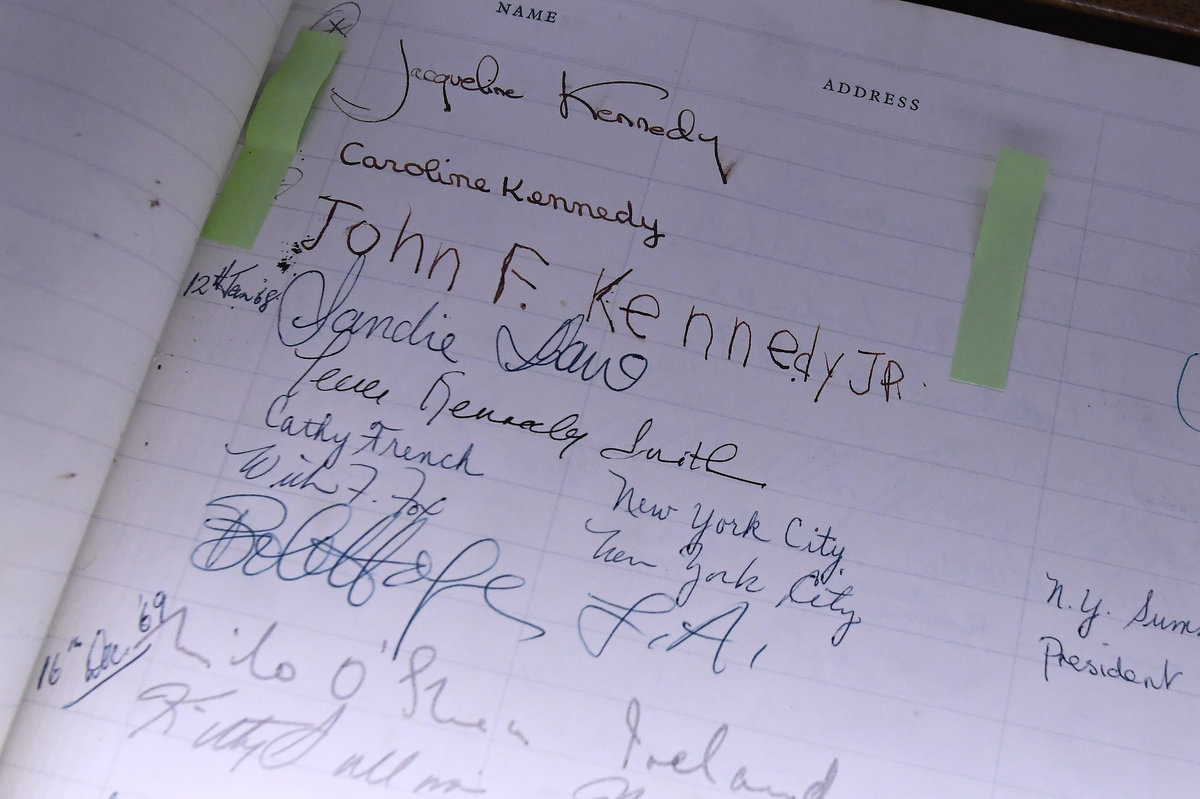 NAME ADDRESS
x
Jacqueline Kennedy
Caroline Kennedy
John F. Kennedy JR.
12th Jan '68 Sandie Shaw
Jean Kennedy Smith
Cathy French New York City N.Y.
F. Fox New York City President
Bob Hope L.A.
16th Dec. '69 Milo O'Shea Ireland
Kitty Sullivan